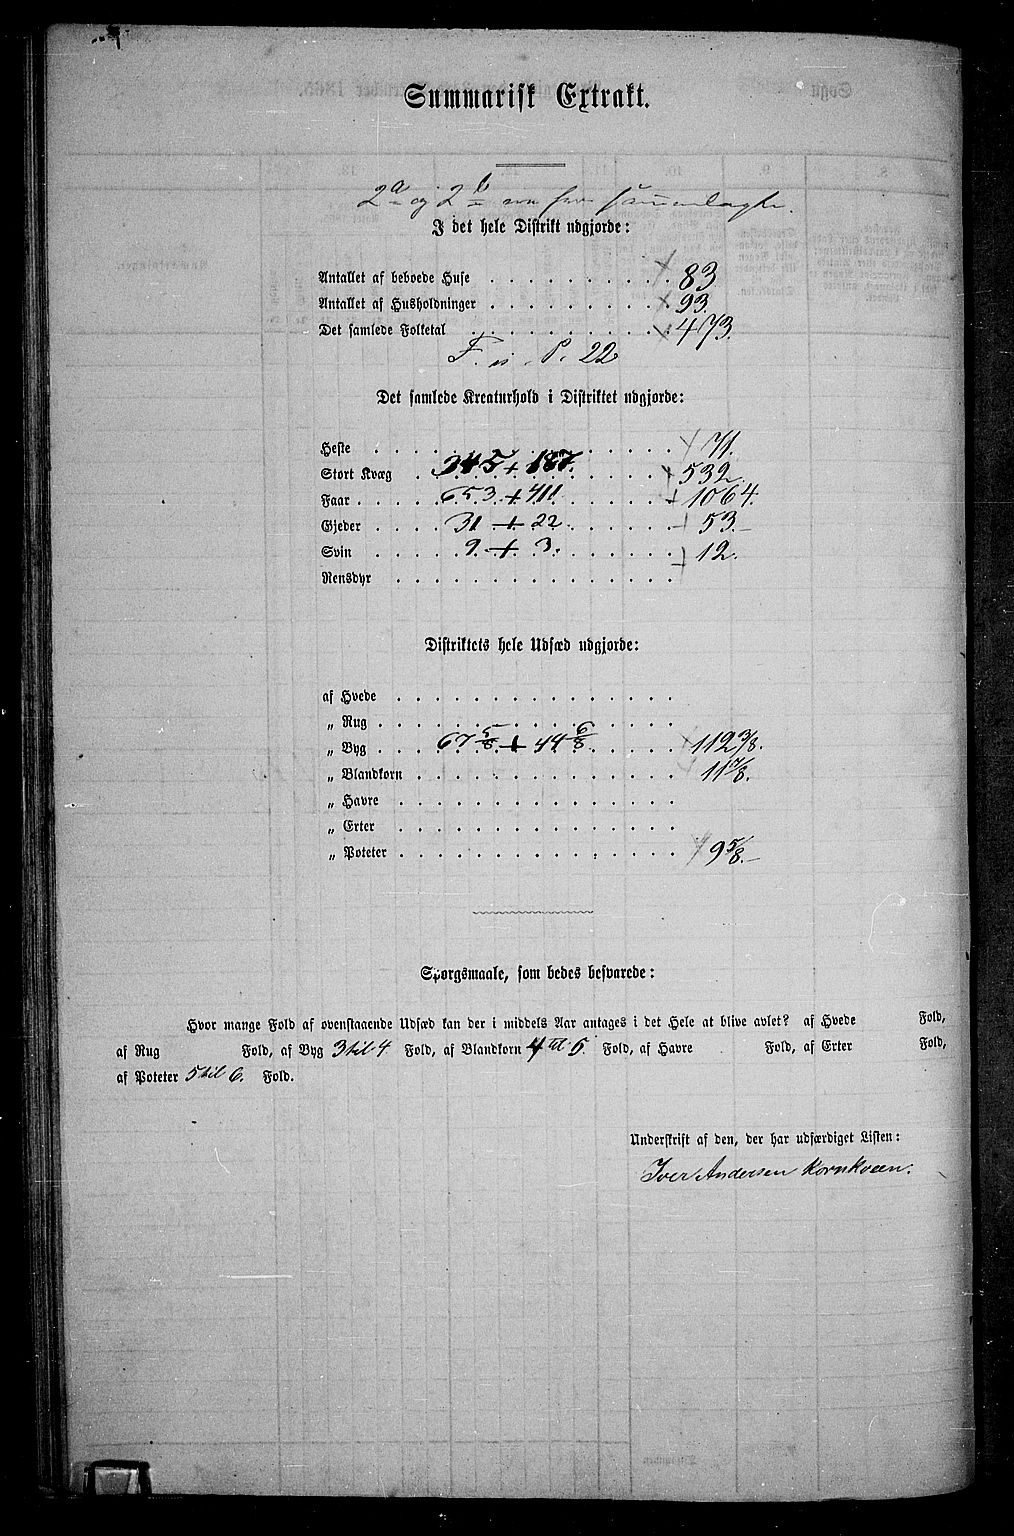 Summarisk Extrakt.
2a og 2b
I det hele Distrikt udgjorde:
Antallet af beboede Huse . . . . . . . . . . 83.
Antallet af Husholdninger . . . . . . . . . . 93.
Det samlede Folketal . . . . . . . . . . . 473.
F. is. P. 22
Det samlede Kreaturhold i Distriktet udgjorde:
Heste . . . . . . . . . . . . . . . . 71.
Stort Kvæg . 345 + 187. . . . . . . 532.
Faar . . . . 653 + 411. . . . . . . 1064.
Gjeder . . . . 31 + 22. . . . . . . 53.
Svin . . . . . 9 + 3. . . . . . . . 12.
Rensdyr . . . . . . . . . . . . . . .
Distriktets hele Udsæd udgjorde:
af Hvede . . . . . . . . . . . . . . .
„ Rug . . . . . . . . . . . . . . . .
„ Byg . . . 67 5/8 + 44 6/8 . . . . . 112 3/8.
„ Blandkorn . . . . . . . . . . . . . 11 7/8.
„ Havre . . . . . . . . . . . . . . .
„ Erter . . . . . . . . . . . . . . .
„ Poteter . . . . . . . . . . . . . . 9 5/8.
Spørgsmaale, som bedes besvarede:
Hvor mange Fold af ovenstaaende Udsæd kan der i middels Aar antages i det Hele at blive avlet? af Hvede Fold,
af Rug Fold, af Byg 3 til 4 Fold, af Blandkorn 4 til 5. Fold, af Havre Fold, af Erter Fold,
af Poteter 5 til 6. Fold.
Underskrift af den, der har udfærdiget Listen:
Iver Andersen Kornkveen.